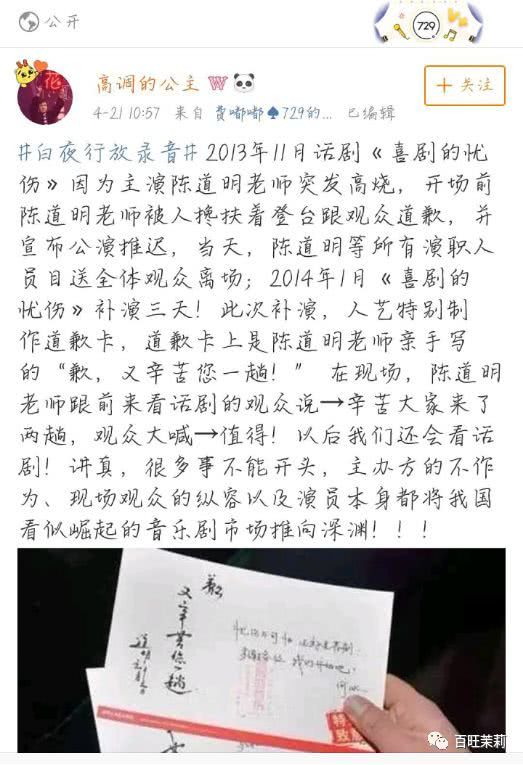 公开
729
高调的公主
+ 关注
4-21 10:57 来自 费嘟嘟♠729的... 已编辑
#白夜行放录音# 2013年11月话剧《喜剧的忧
伤》因为主演陈道明老师突发高烧，开场前
陈道明老师被人搀扶着登台跟观众道歉，并
宣布公演推迟，当天，陈道明等所有演职人
员目送全体观众离场；2014年1月《喜剧的
忧伤》补演三天！此次补演，人艺特别制
作道歉卡，道歉卡上是陈道明老师亲手写
的“歉，又辛苦您一趟！” 在现场，陈道明
老师跟前来看话剧的观众说→辛苦大家来了
两趟，观众大喊→值得！以后我们还会看话
剧！讲真，很多事不能开头，主办方的不作
为、现场观众的纵容以及演员本身都将我国
看似崛起的音乐剧市场推向深渊！！！
歉
又辛苦您一趟
道明
特致
百旺茉莉